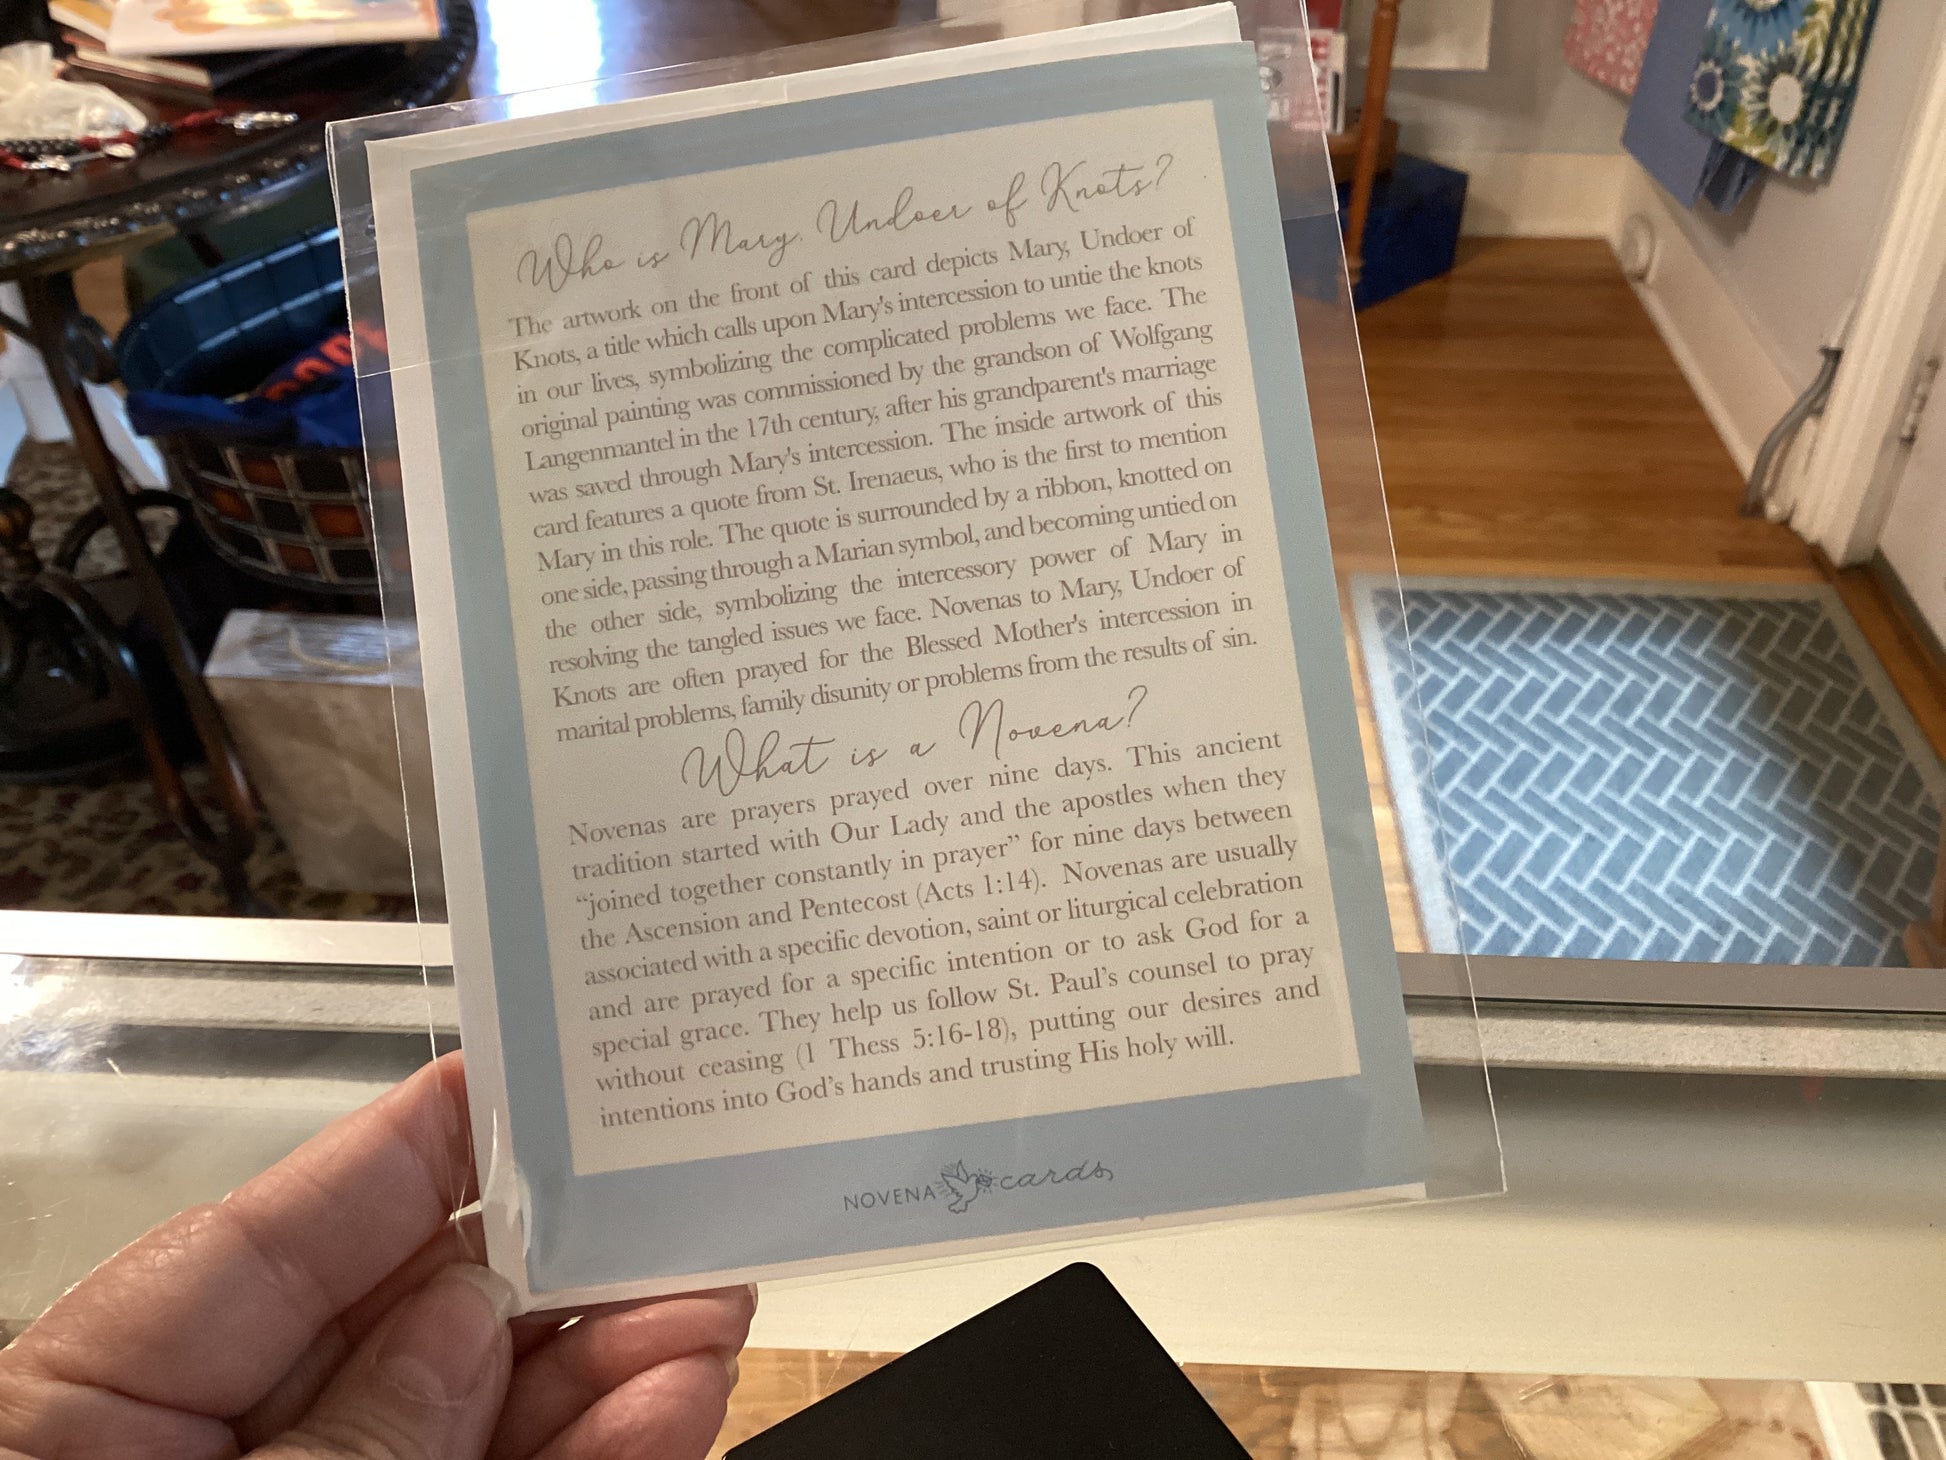 Who is Mary, Undoer of Knots?
The artwork on the front of this card depicts Mary, Undoer of
Knots, a title which calls upon Mary's intercession to untie the knots
in our lives, symbolizing the complicated problems we face. The
original painting was commissioned by the grandson of Wolfgang
Langenmantel in the 17th century, after his grandparent's marriage
was saved through Mary's intercession. The inside artwork of this
card features a quote from St. Irenaeus, who is the first to mention
Mary in this role. The quote is surrounded by a ribbon, knotted on
one side, passing through a Marian symbol, and becoming untied on
the other side, symbolizing the intercessory power of Mary in
resolving the tangled issues we face. Novenas to Mary, Undoer of
Knots are often prayed for the Blessed Mother's intercession in
marital problems, family disunity or problems from the results of sin.
What is a Novena?
Novenas are prayers prayed over nine days. This ancient
tradition started with Our Lady and the apostles when they
“joined together constantly in prayer” for nine days between
the Ascension and Pentecost (Acts 1:14). Novenas are usually
associated with a specific devotion, saint or liturgical celebration
and are prayed for a specific intention or to ask God for a
special grace. They help us follow St. Paul’s counsel to pray
without ceasing (1 Thess 5:16-18), putting our desires and
intentions into God’s hands and trusting His holy will.
NOVENA cards